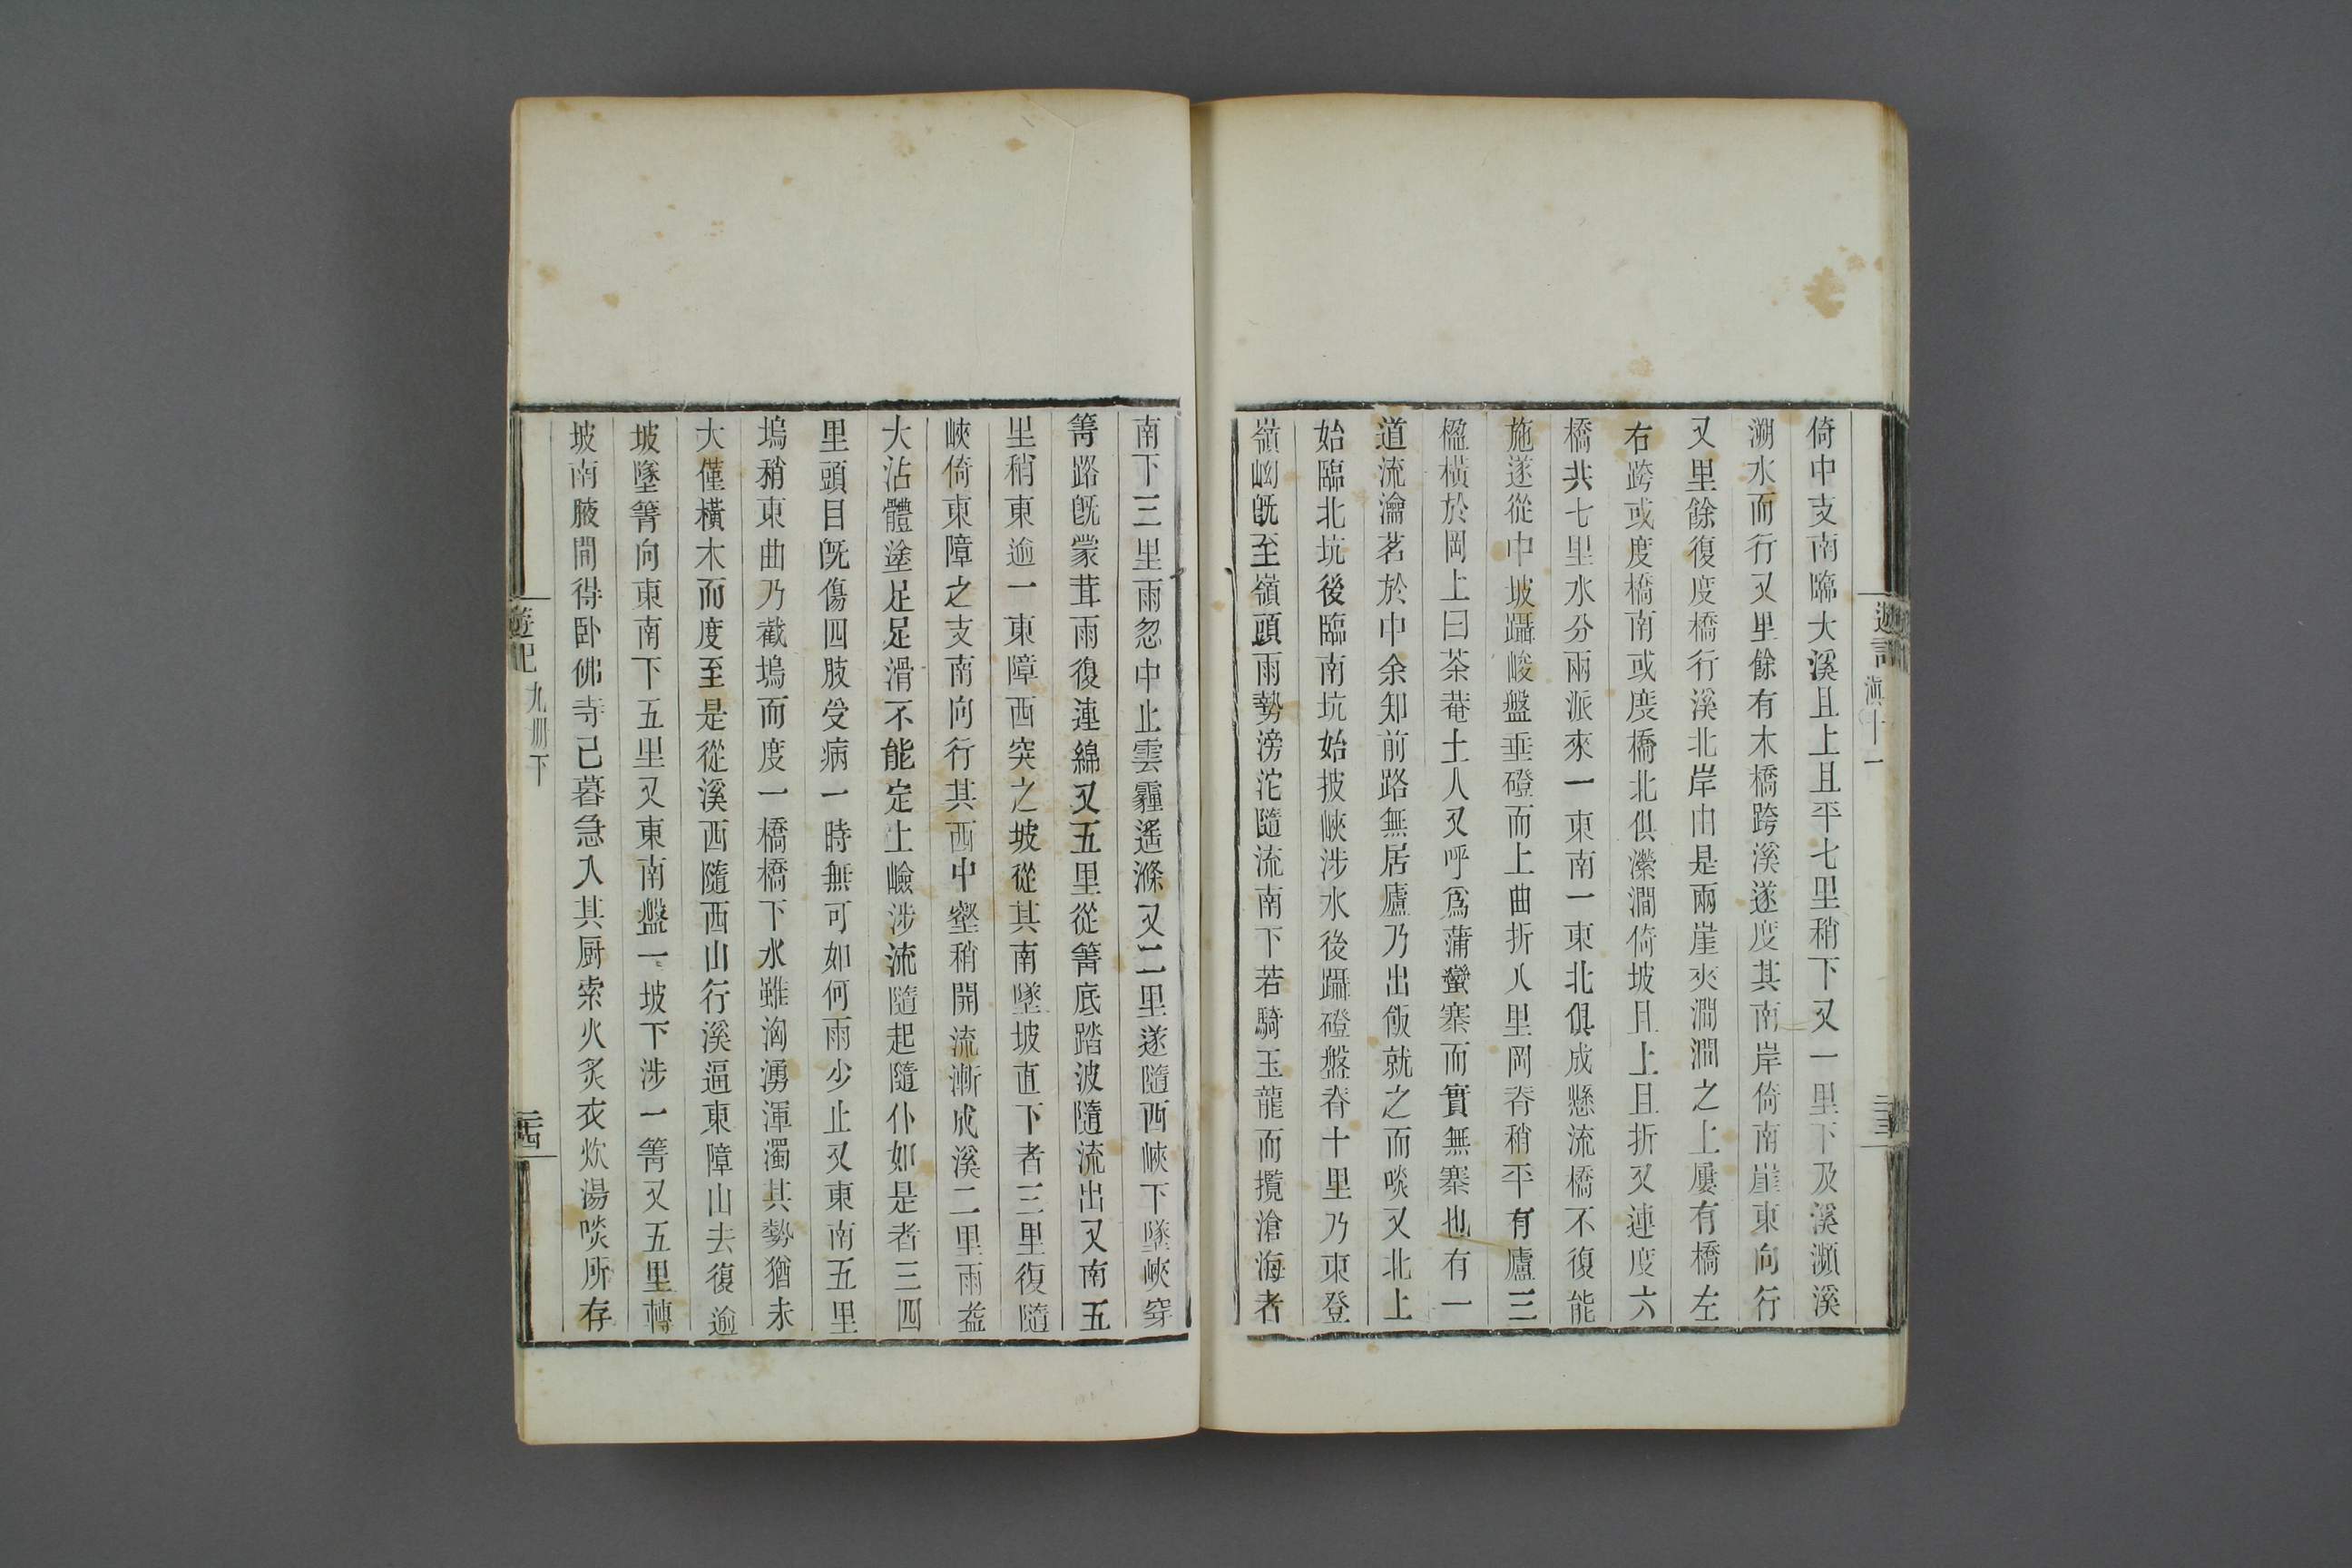 遊記
滇十一
二十三
倚中支南臨大溪且上且平七里稍下又一里下及溪瀕溪
溯水而行又里餘有木橋跨溪遂度其南岸倚南崖東向行
又里餘復度橋行溪北岸由是兩崖夾澗澗之上屢有橋左
右跨或度橋南或度橋北俱瀠澗倚坡且上且折又連度六
橋共七里水分兩派來一東南一東北俱成懸流橋不復能
施遂從中坡躡峻盤垂磴而上曲折八里岡脊稍平有廬三
楹橫於岡上曰茶菴土人又呼爲蒲蠻寨而實無寨也有一
道流瀹茗於中余知前路無居廬乃出飯就之而啖又北上
始臨北坑後臨南坑始披峽涉水後躡磴盤脊十里乃東登
嶺㘭旣至嶺頭雨勢滂沱隨流南下若騎玉龍而攬滄海者
南下三里雨忽中止雲霾遙滌又二里遂隨西峽下墜峽穿
箐路旣蒙茸雨復連綿又五里從箐底踏波隨流出又南五
里稍東逾一東障西突之坡從其南墜坡直下者三里復隨
峽倚東障之支南向行其西中壑稍開流漸成溪二里雨益
大沾體塗足足滑不能定上嶮涉流隨起隨仆如是者三四
里頭目旣傷四肢受病一時無可如何雨少止又東南五里
塢稍東曲乃截塢而度一橋橋下水雖洶湧渾濁其勢猶未
大僅橫木而度至是從溪西隨西山行溪逼東障山去復逾
坡墜箐向東南下五里又東南盤一坡下涉一箐又五里轉
坡南腋間得卧佛寺已暮急入其厨索火炙衣炊湯啖所存
遊記
九冊下
二十四